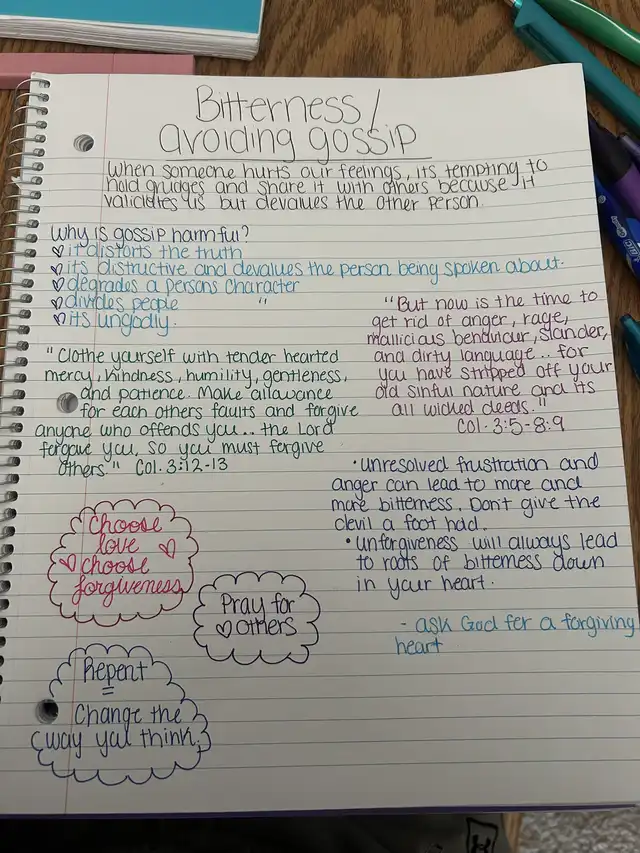 Bitterness/
avoiding gossip
When someone hurts our feelings, its tempting to
hold grudges and share it with others because it
validates us but devalues the other person.
Why is gossip harmful?
it distorts the truth
its distructive and devalues the person being spoken about.
degrades a persons character
divides people "
its ungodly.
"Clothe yourself with tender hearted
mercy, kindness, humility, gentleness,
and patience. Make allowance
for each others faults and forgive
anyone who offends you... the Lord
forgave you, so you must forgive
others." Col. 3:12-13
"But now is the time to
get rid of anger, rage,
mallicious behaviour, slander,
and dirty language... for
you have stripped off your
old sinful nature and its
all wicked deeds."
Col. 3:5-8:9
• unresolved frustration and
anger can lead to more and
more bitterness. Don't give the
devil a foot hold.
• unforgiveness will always lead
to roots of bitterness down
in your heart.
- ask God for a forgiving
heart
Choose
love
choose
forgiveness
Pray for
others
Repent
=
Change the
way you think.